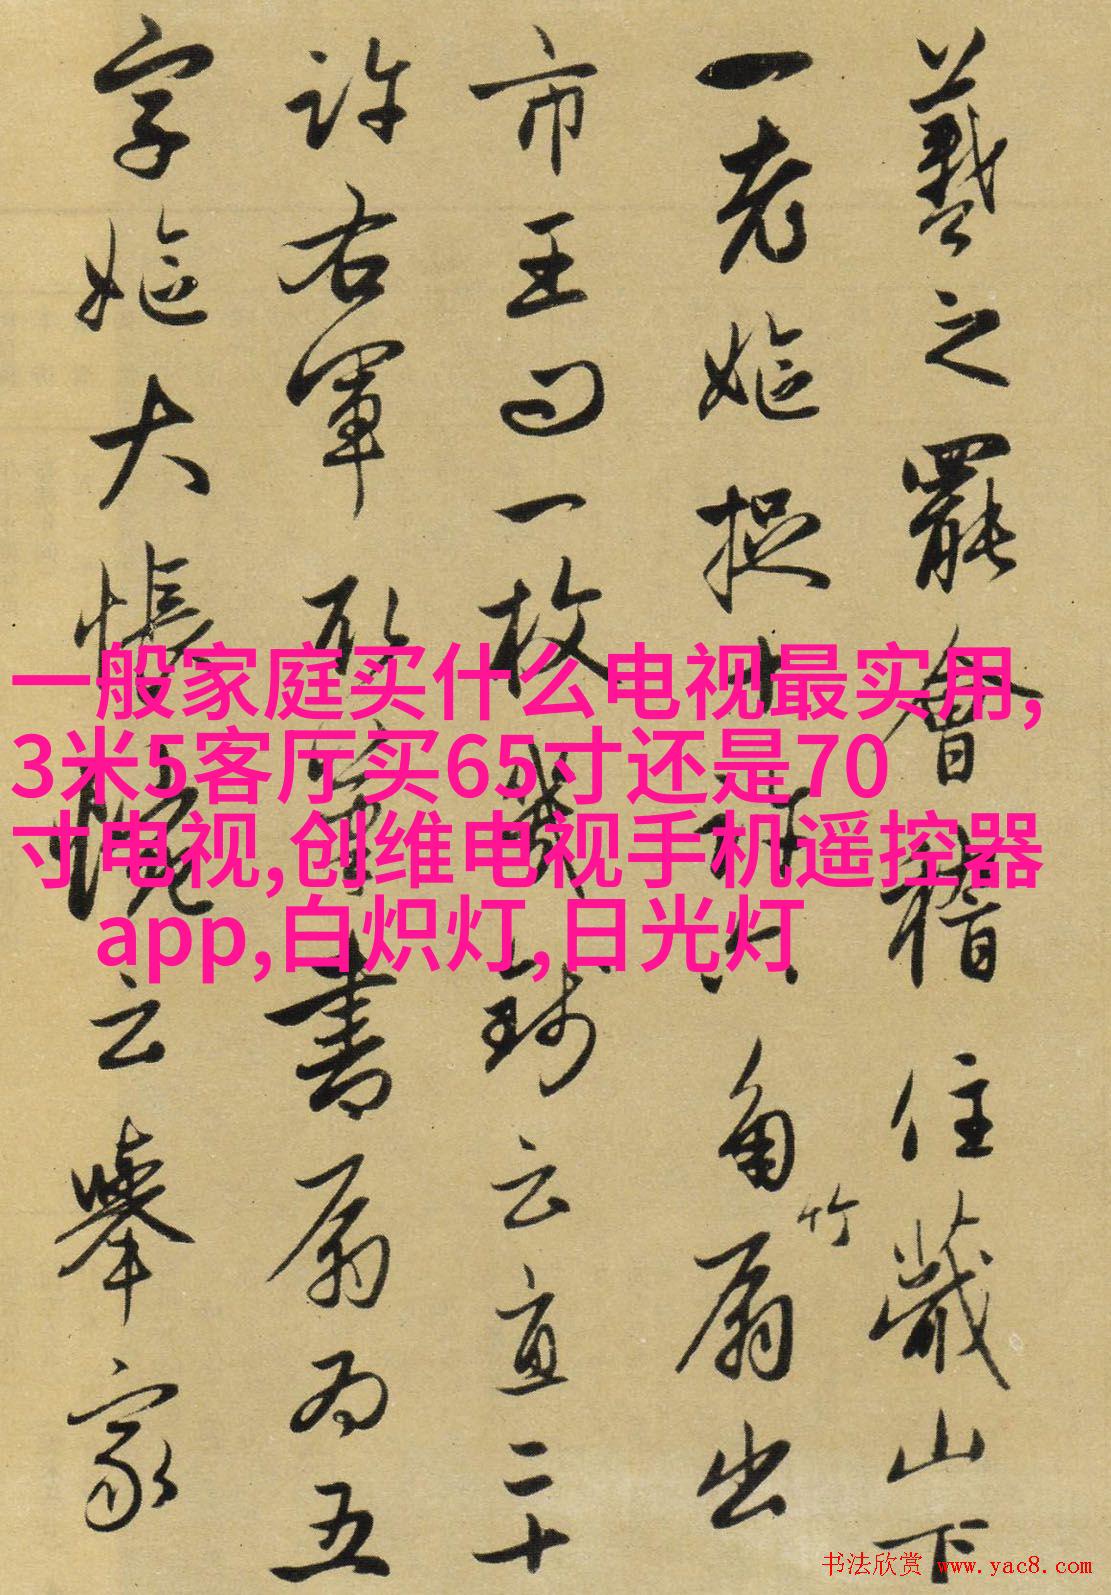 羲之罷會稽住蕺山下
一老嫗捉十許六角竹扇出
市王問一枚幾錢云直二十
許右軍取筆書扇為五
字嫗大悵惋云舉家
一般家庭买什么电视最实用,
3米5客厅买65寸还是70
寸电视,创维电视手机遥控器
app,白炽灯,日光灯
书法欣赏 www.yac8.com